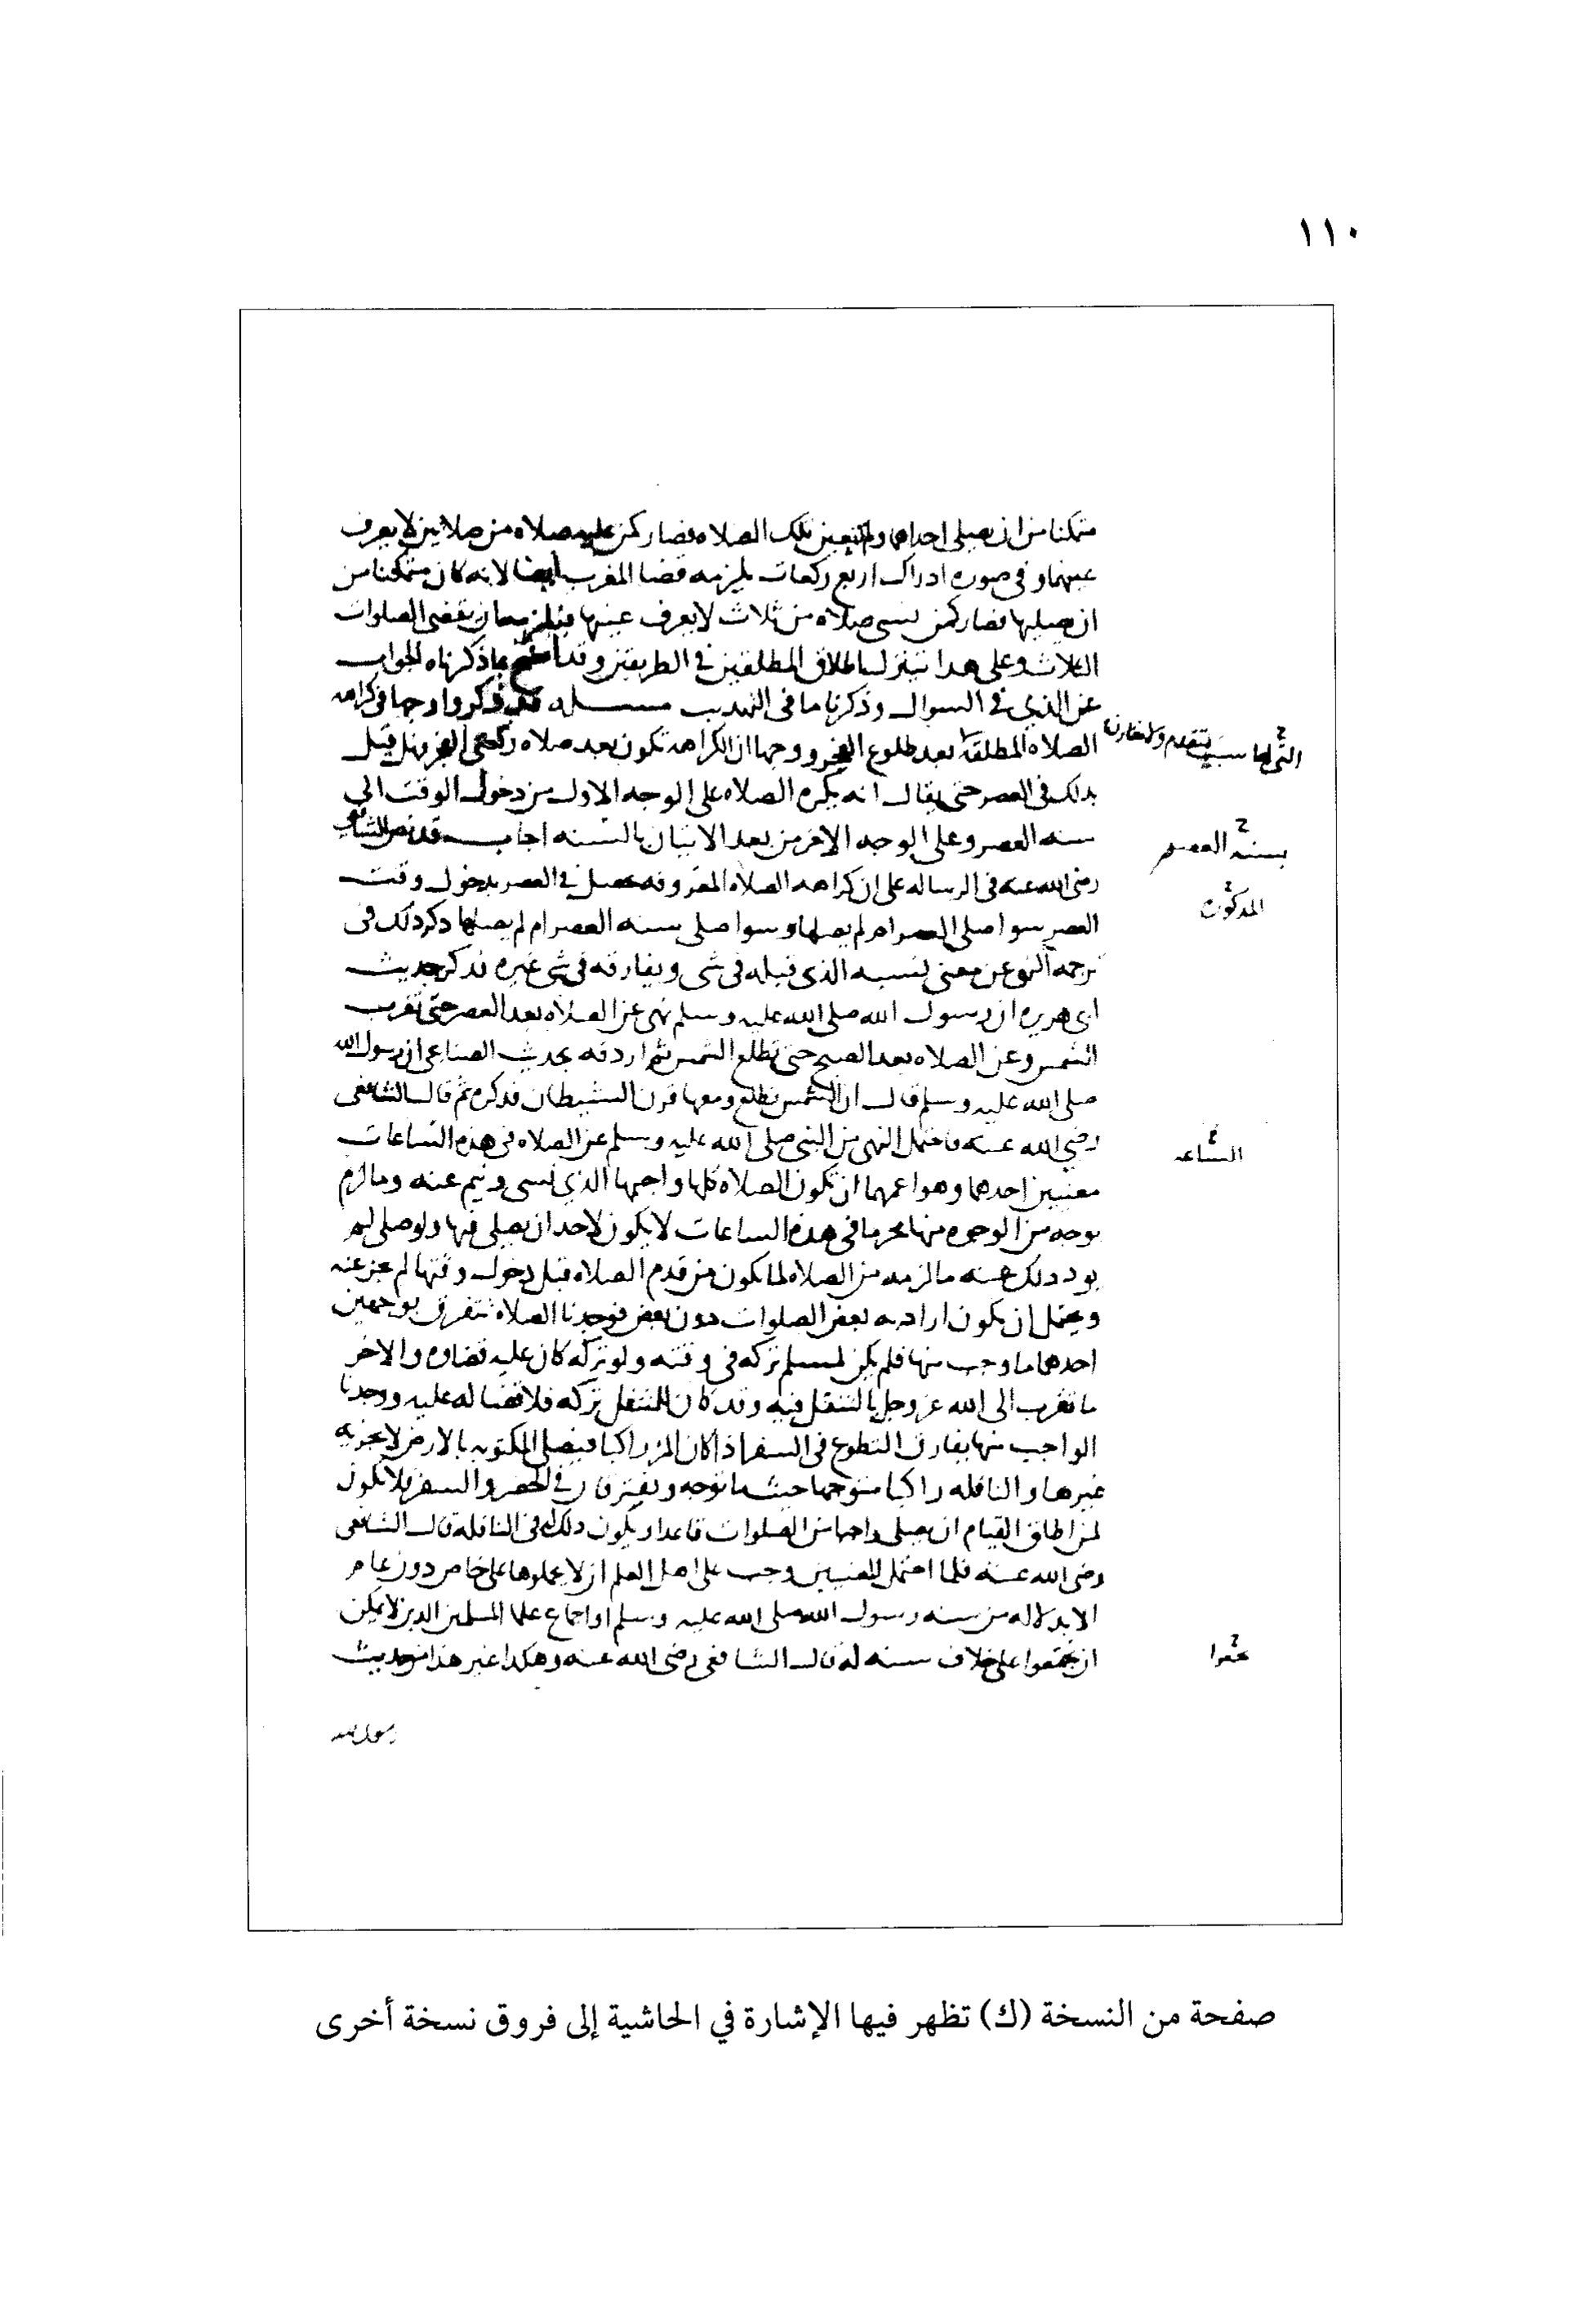 ١١٠
متمكنا من ان يصلى احداهما ولم تتعين تلك الصلاه فصار كمن عليه صلاه من صلاتين لا يعرف
عينها وفى صوره ادراك اربع ركعات يلزمه قضا المغرب ايضا لانه كان متمكنا من
ان يصليها فصار كمن نسى صلاه من ثلاث لا يعرف عينها فيلزمه ان يقضى الصلوات
الثلاث وعلى هدا تنزل اطلاق المطلقين فى الطريقين وقد بما ذكرناه الجواب
عن الذي فى السوال وذكرنا ما فى التهديب مسله قد ذكروا وجها فى كراهه
الصلاه المطلقه بعد طلوع الفجر ووجها ان الكراهه تكون بعد صلاه ركعتى الفجر هل قيل
بدلك فى العصر حتى يقال انه يكره الصلاه على الوجه الاول من دخول الوقت الي
سنه العصر وعلى الوجه الاخر من بعد الاتيان بالسنه اجاب قد نص الشافعى
رضى الله عنه فى الرساله على ان كراهه الصلاه المعروفه تحصل فى العصر بدخول وقت
العصر سوا صلى العصر ام لم يصلها وسوا صلى سنه العصر ام لم يصلها دكر ذلك فى
ترجمه النهى عن معنى يشبه الذى قبله فى شى ويفارقه فى شى غيره فذكر حديث
ابى هريره ان رسول الله صلى الله عليه وسلم نهى عن الصلاه بعد العصر حتى تغرب
الشمس وعن الصلاه بعد الصبح حتى تطلع الشمس ثم اردفه بحديث الصنابحى ان رسول الله
صلى الله عليه وسلم قال ان الشمس تطلع ومعها قرن الشيطان فدكره ثم قال الشافعى
رضى الله عنه فاحتمل النهى من النبى صلى الله عليه وسلم عن الصلاه فى هذه الساعات
معنيين احدهما وهو اعمهما ان تكون الصلاه كلها واجبها الذي نسى ونيم عنه وما لزم
بوجه من الوجوه منها محرما فى هذه الساعات لا يكون لاحد ان يصلى فيها ولو صلى لم
يودد دلك عنه ما لزمه من الصلاه كما يكون من قدم الصلاه قبل دخول وقتها لم تجز عنه
ويحتمل ان يكون اراد به بعض الصلوات دون بعض فوجدنا الصلاه تتفرق بوجهين
احدهما ما وجب منها فلم يكن لمسلم تركه فى وقته ولو تركه كان عليه قضاوه والاخر
ما تقرب الى الله عز وجل بالتنفل فيه وقد كان للمتنفل تركه فلا قضا له عليه ووجدنا
الواجب منها يفارق التطوع فى السفر اذا كان المر راكبا فيصلى المكتوبه بالارض لا يجزيه
غيرها والنافله راكبا متوجها حيث ما توجه ويفترقان فى الحضر والسفر فلا تكون
لمن اطاق القيام ان يصلى واجبا من الصلوات قاعدا ويكون دلك له فى النافله قال الشافعى
رضى الله عنه فلما احتمل المعنيين وجب على اهل العلم ان لا يحملوها على خاص دون عام
الا بدلاله من سنه رسول الله صلى الله عليه وسلم او اجماع علما المسلمين الدين لا يمكن
ان يجتمعوا على خلاف سنه له قال الشافعى رضى الله عنه وهكدا غير هذا من حديث
التى لها سبب يتقدم ولا يقارن
بسنه العصر
المدكوره
الساعه
رسول الله
صفحة من النسخة (ك) تظهر فيها الإشارة في الحاشية إلى فروق نسخة أخرى